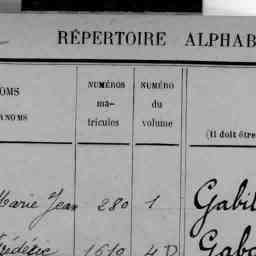 RÉPERTOIRE ALPHAB
OMS
NUMÉROS
ma-
tricules
NUMÉRO
du
volume
NOMS
(Il doit être
Marie Jean 280 1 Gabil
Frédéric 1610 4 D Gabo